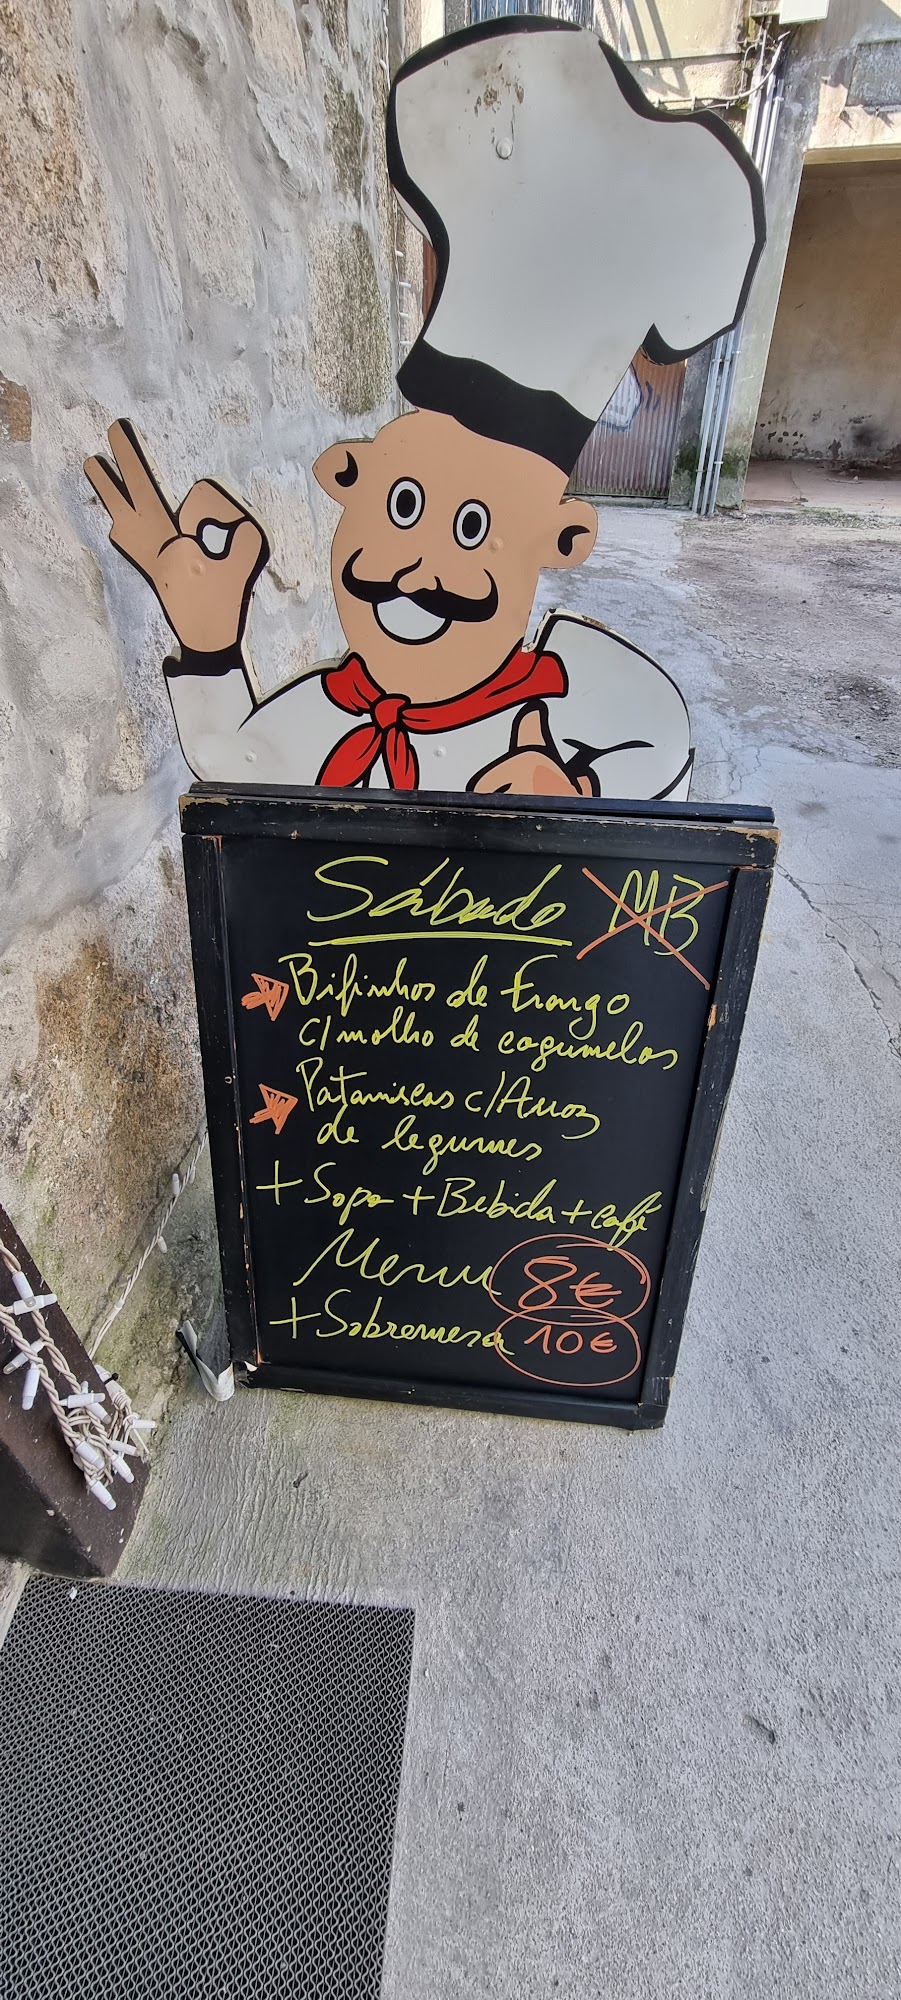 Sábado MB
Bifinhos de Frango
c/molho de cogumelos
Pataniscas c/Arroz
de legumes
+ Sopa + Bebida + café
Menu 8€
+ Sobremesa 10€